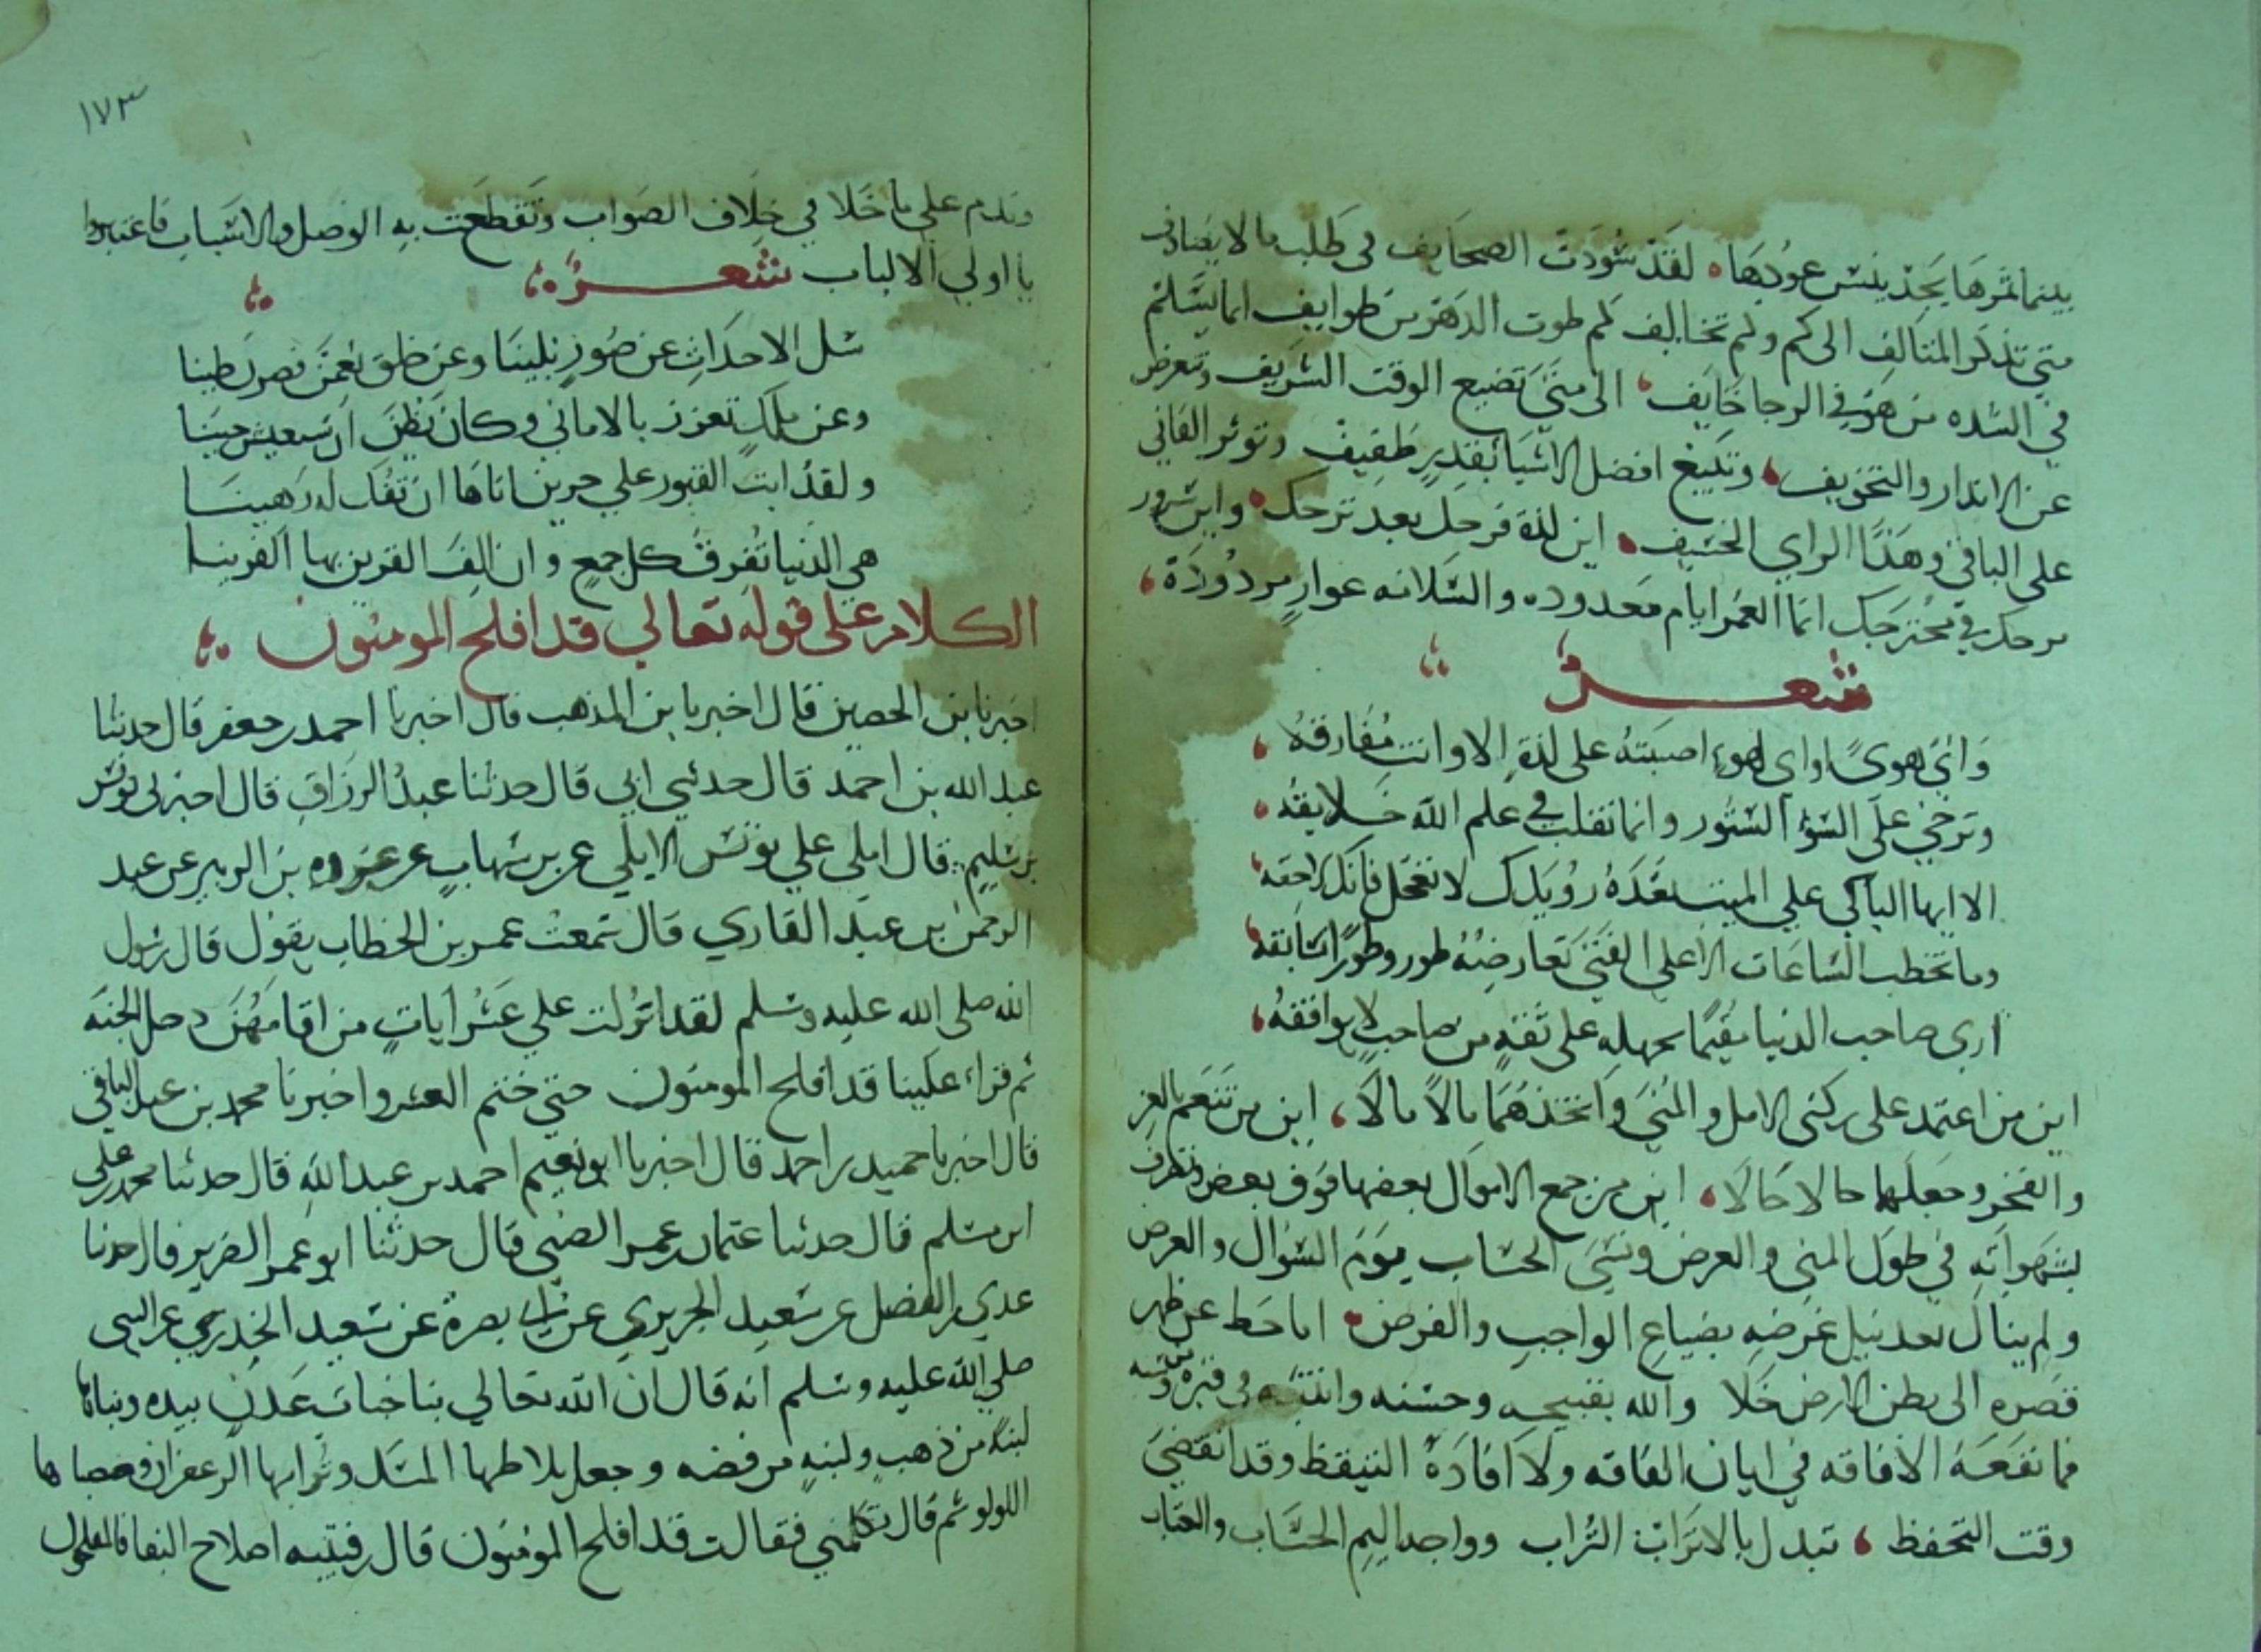 بينما ثمرها يجذ ينس عودها لقد سودت الصحايف في طلب ما لا يصادف
متي تذكر المتالف الى كم ولم تخالف كم طوت الدهر من طوايف اما يسلم
في الشده من هو في الرجا خايف الى متى تضيع الوقت الشريف وتعرض
عن الانذار والتخويف وتبيع افضل الاشيا بقدر طفيف وتوثر الفاني
على الباقي وهذا الراي الخسيف اين لذة فرحك بعد ترحك واين سرور
مرحك في مجترحك انما العمر ايام معدوده والسلامه عوار مردودة
شعر
واي هوى او اي لهو اصبته على لذة الا وانت مفارقه
وترخي على السؤ الستور وانما تقلب في علم الله خلايقه
الا ايها الباكي علي الميت بعده رويدك لا تعجل فانك لاحقه
وما تخطب الساعات الا علي الفتى تعارضه طور وطورا تسابقه
اري صاحب الدنيا مقيما بجهله على ثقة من صاحب لا يوافقه
اين من اعتمد على ركنى الامل والمنى واتخذهما مالا مالا اين من تنعم بالعز
والفخر وجعلهما حالا حالا اين من جمع الاموال بعضها فوق بعض وتصرف
بشهواته في طول المني والعرض ونسي الحساب يوم السؤال والعرض
ولم ينال بعد نيل غرضه بضياع الواجب والفرض اما حط عن ظهر
قصره الى بطن الارض خلا والله بقبيحه وحسنه وانتبه في قبره من وسنه
فما نفعه الافاقه في ايان الفاقه ولا افادة التيقظ وقد انقضى
وقت التحفظ تبدل بالاتراب التراب وواجد اليم الحساب والعتاب
١٧٣
وندم علي ما خلا في خلاف الصواب وتقطعت به الوصل والاسباب فاعتبروا
يا اولي الالباب شعر
سل الاحداث عن صور بلينا وعن خلق نعمن فصرن طينا
وعن ملك تعزز بالاماني وكان يظن ان سيعيش حينا
ولقد ابت القبور علي حرين اتاها ان تفك له رهينا
هي الدنيا تفرق كل جمع وان الف القرين بها القرينا
الكلام على قوله تعالي قد افلح المومنون
اخبرنا بن الحصين قال اخبرنا بن المذهب قال اخبرنا احمد بن جعفر قال حدثنا
عبد الله بن احمد قال حدثني ابي قال حدثنا عبد الرزاق قال اخبرني يونس
بن سليم قال املى علي يونس الايلي عن بن شهاب عن عروه بن الزبير عن عبد
الرحمن بن عبد القاري قال سمعت عمر بن الخطاب يقول قال رسول
الله صلى الله عليه وسلم لقد انزلت علي عشر ايات من اقامهن دخل الجنه
ثم قراء علينا قد افلح المومنون حتي ختم العشر واخبرنا محمد بن عبد الباقي
قال اخبرنا حميد بن احمد قال اخبرنا ابو نعيم احمد بن عبد الله قال حدثنا محمد بن علي
ابن مسلم قال حدثنا عثمان بن عمر الضبي قال حدثنا ابو عمر الضرير قال حدثنا
عدي بن الفضل عن سعيد الجريري عن ابي بصرة عن سعيد الخدري عن النبي
صلي الله عليه وسلم انه قال ان الله تعالي بنا جنات عدن بيده وبناها
لبنة من ذهب ولبنه من فضه وجعل بلاطها المسك وترابها الزعفران وحصباها
اللولو ثم قال تكلمني فقالت قد افلح المومنون قال رفتيبه اصلاح البقا فالمفلحون